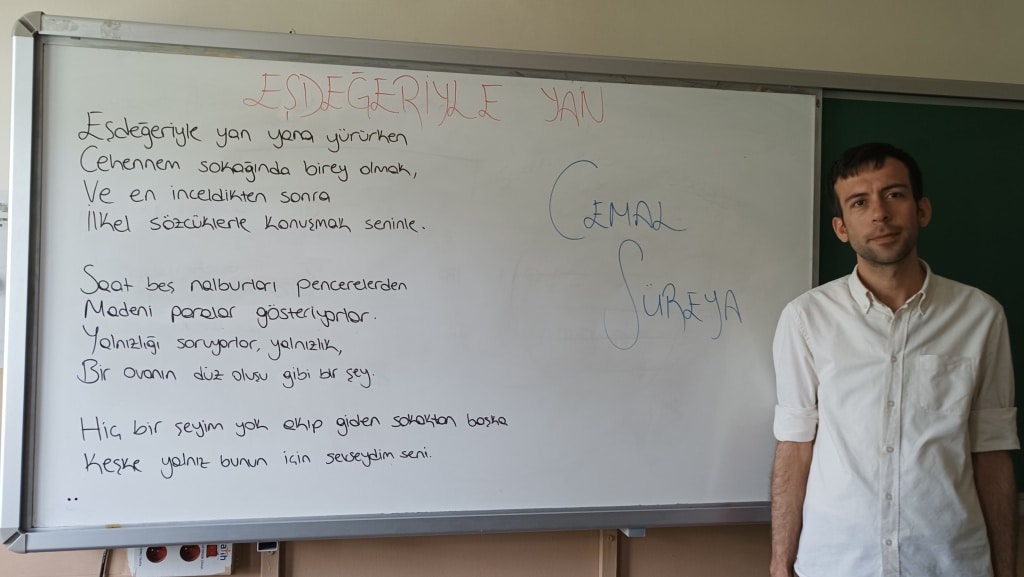 EŞDEĞERİYLE YAN
Eşdeğeriyle yan yana yürürken
Cehennem sokağında birey olmak,
Ve en inceldikten sonra
İlkel sözcüklerle konuşmak seninle.
Saat beş nalburları pencerelerden
Madeni paralar gösteriyorlar.
Yalnızlığı soruyorlar, yalnızlık,
Bir ovanın düz oluşu gibi bir şey.
Hiç bir şeyim yok akıp giden sokaktan başka
Keşke yalnız bunun için sevseydim seni.
..
CEMAL
SÜREYA